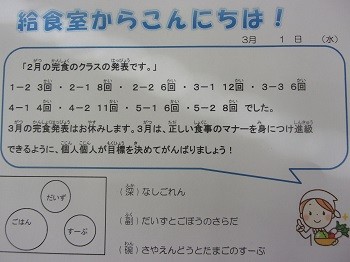 給食室からこんにちは！
3月　1　日　（水）
「２月の完食のクラスの発表です。」
1－2　3回　・　2－1　8回　・　2－2　6回　・　3－1　12回　・　3－3　6回
4－1　4回　・　4－2　11回　・　5－1　6回　・　5－2　8回　でした。
３月の完食発表はお休みします。３月は、正しい食事のマナーを身につけ進級
できるように、個人個人が目標を決めてがんばりましょう！
だいず
ごはん
すーぷ
（深）なしごれん
（副）だいずとごぼうのさらだ
（碗）さやえんどうとたまごのすーぷ